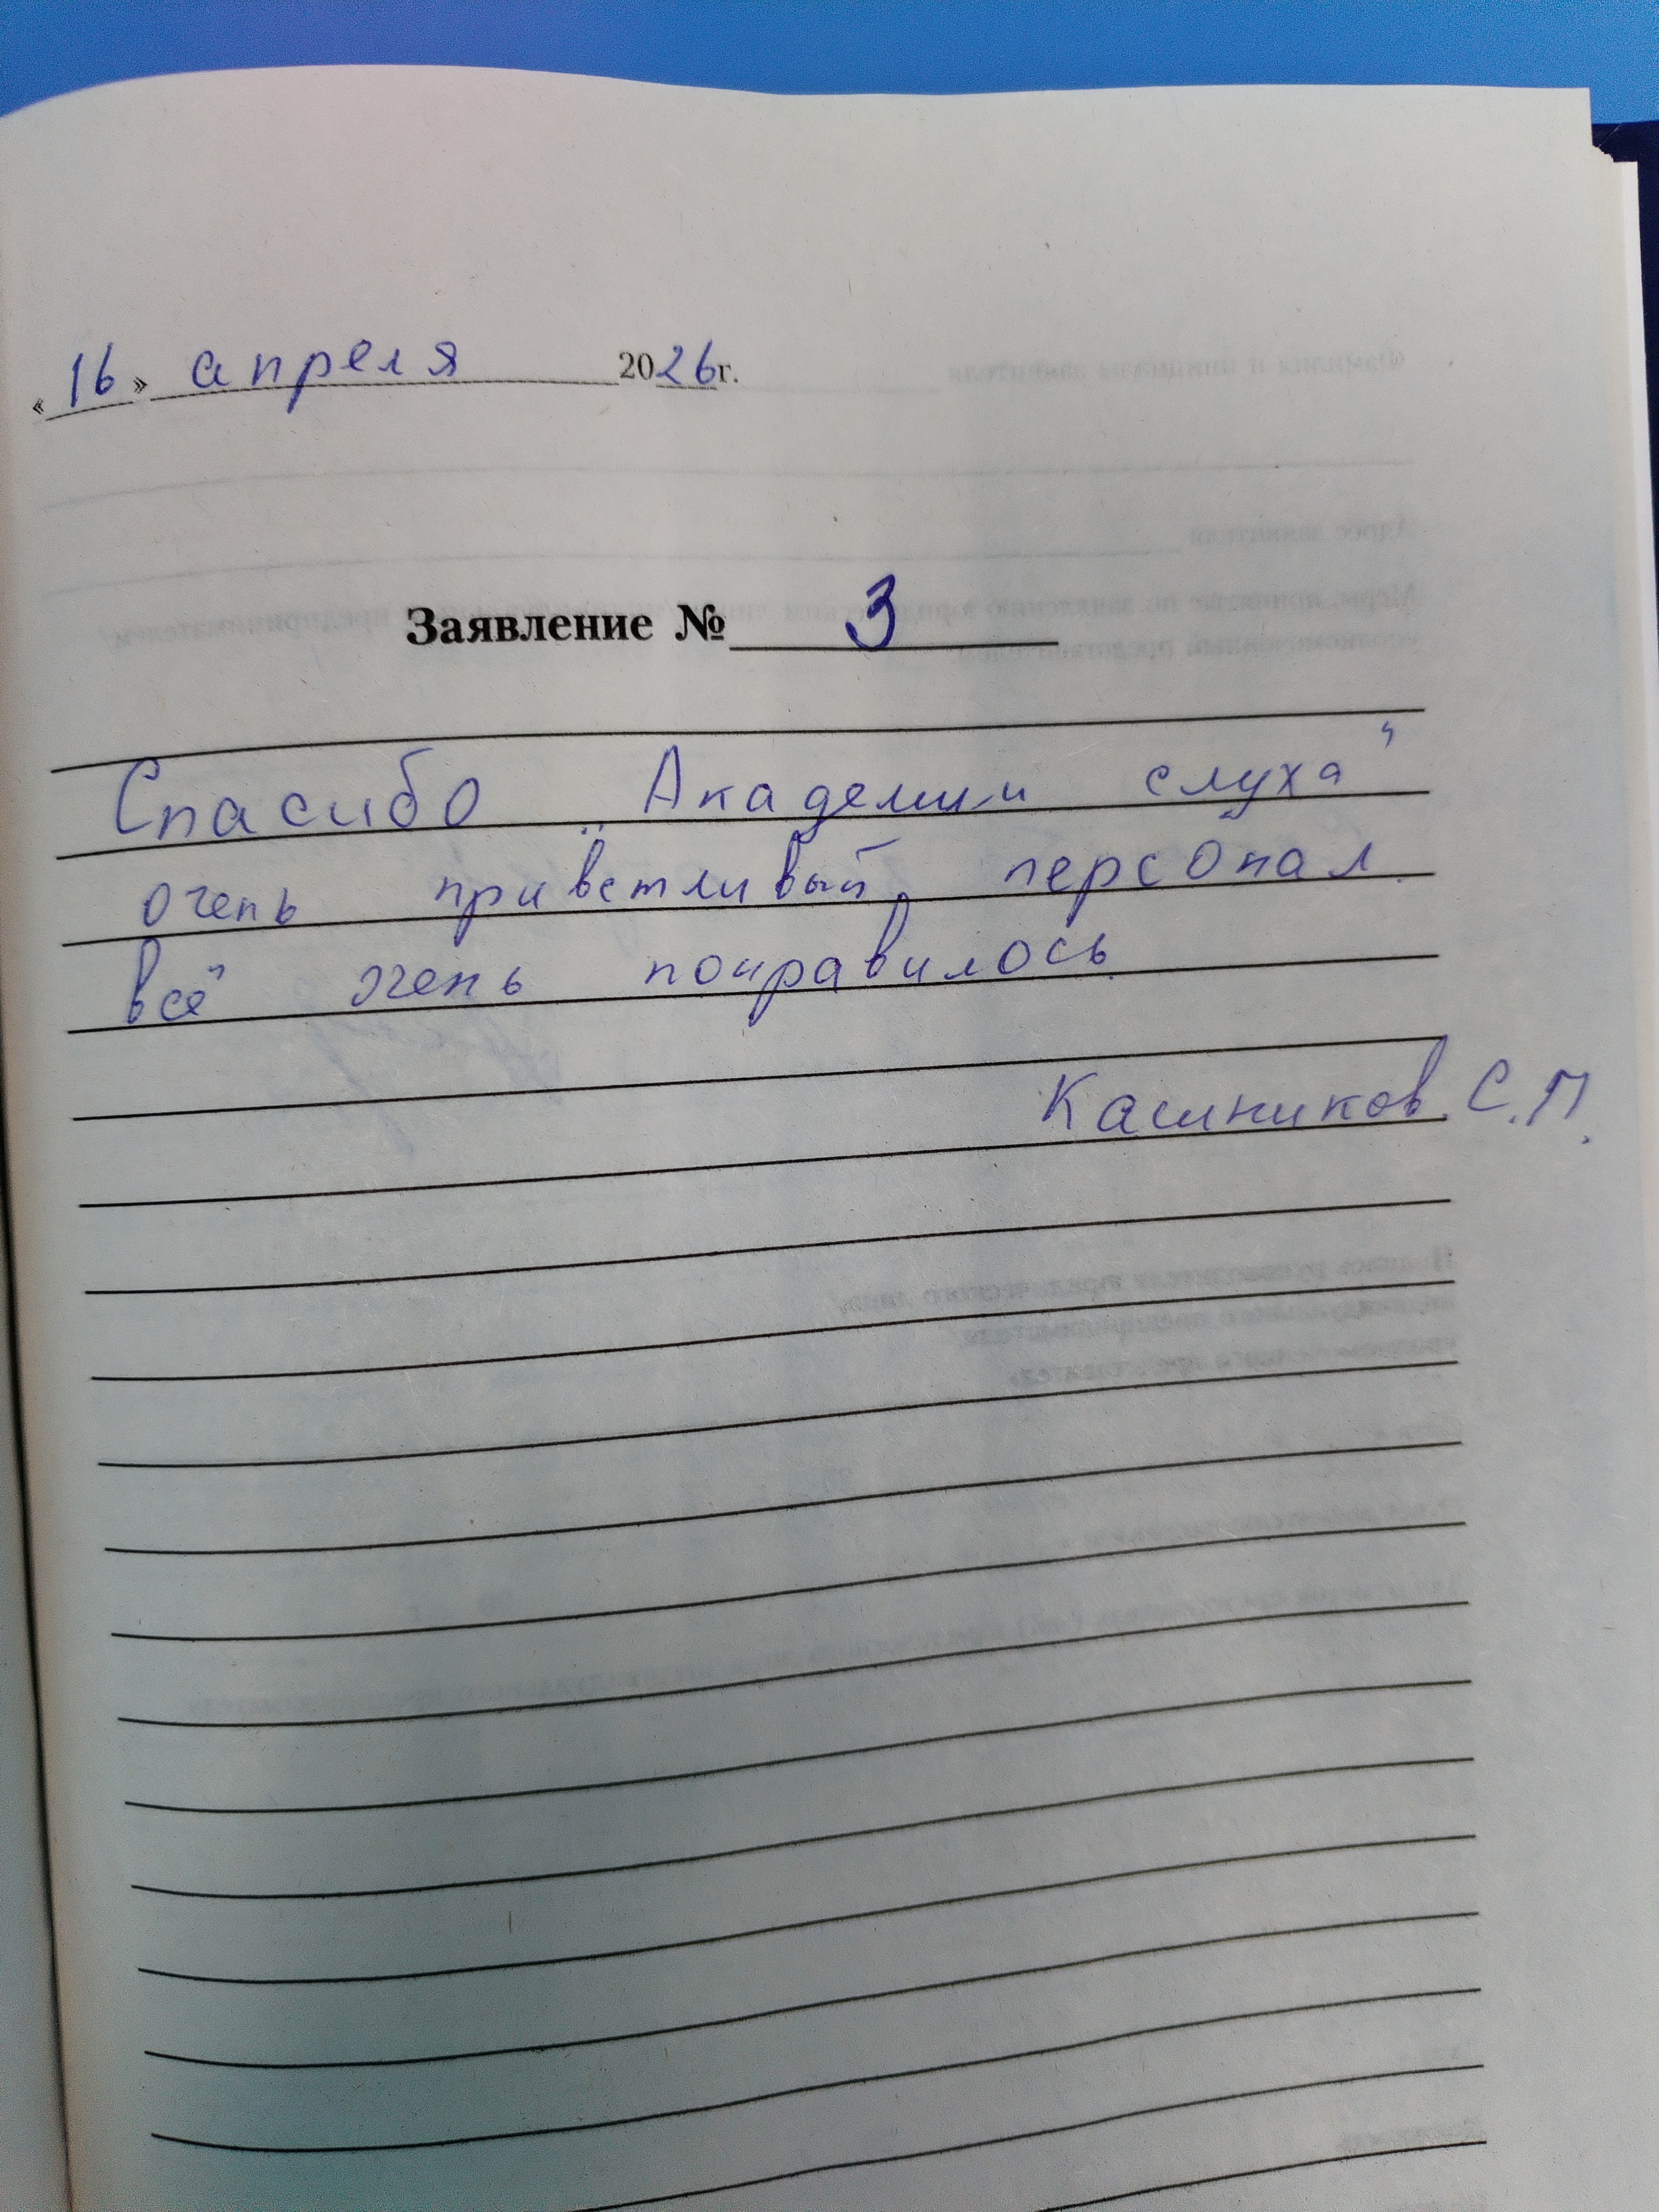 «16» апреля 2026г.
Заявление № 3
Спасибо „Академии слуха“
очень приветливый персонал.
всё очень понравилось.
С.П.